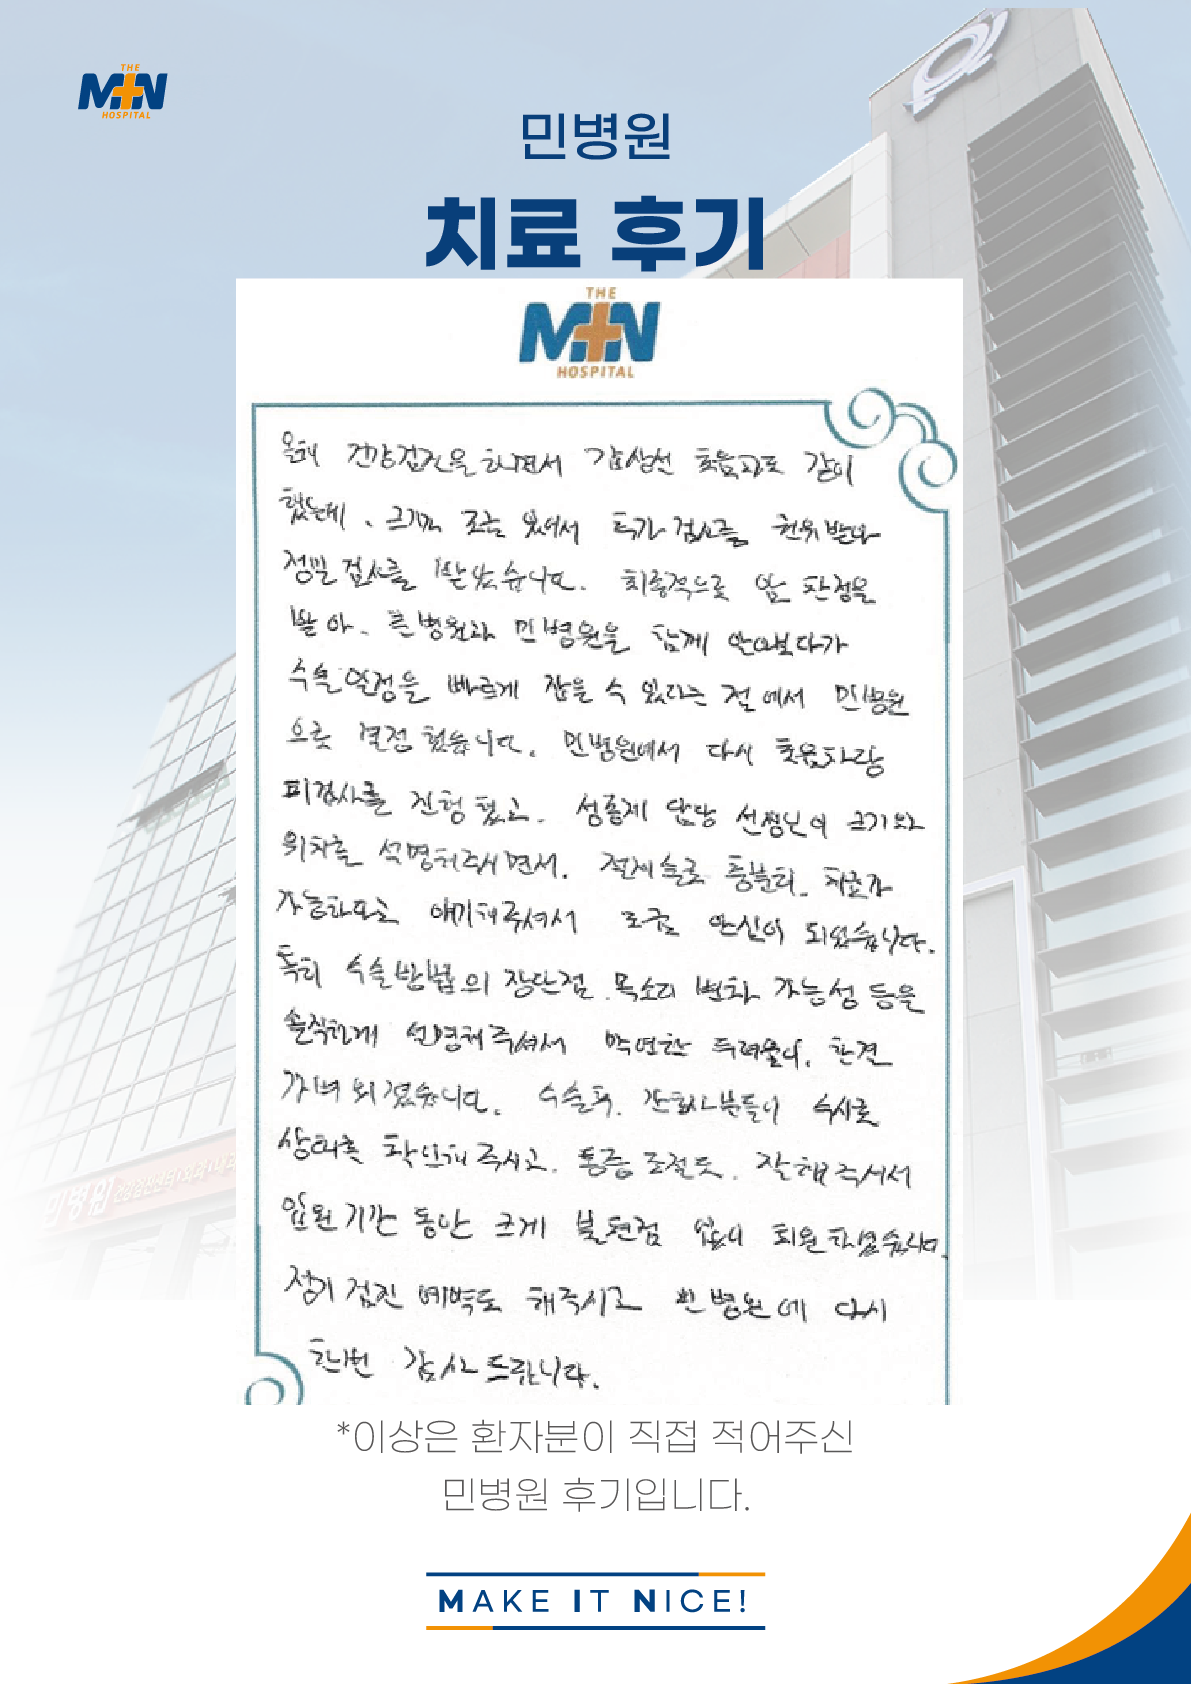 THE
MIN
HOSPITAL
민병원
치료 후기
THE
MIN
HOSPITAL
올해 건강검진을 하면서 갑상선 초음파도 같이
했는데, 크기가 조금 있어서 추가 검사를 권유받아
정밀 검사를 받았습니다. 최종적으로 암 판정을
받아, 큰병원과 민병원을 함께 알아보다가
수술일정을 빠르게 잡을 수 있다는 점에서 민병원
으로 결정했습니다. 민병원에서 다시 초음파랑
피검사를 진행했고, 성흠제 담당 선생님이 크기와
위치를 설명해주시면서, 절제술로 충분히 치료가
가능하다고 얘기해주셔서 조금 안심이 되었습니다.
특히 수술방법의 장단점, 목소리 변화 가능성 등을
솔직하게 설명해주셔서 막연한 두려움이, 한결
가벼워졌습니다. 수술후, 간호사분들이 수시로
상태를 확인해주시고, 통증 조절도, 잘해주셔서
입원기간 동안 크게 불편점 없이 퇴원하였습니다.
정기 검진 예약도 해주시고 민병원에 다시
한번 감사드립니다.
*이상은 환자분이 직접 적어주신
민병원 후기입니다.
MAKE IT NICE!
민병원